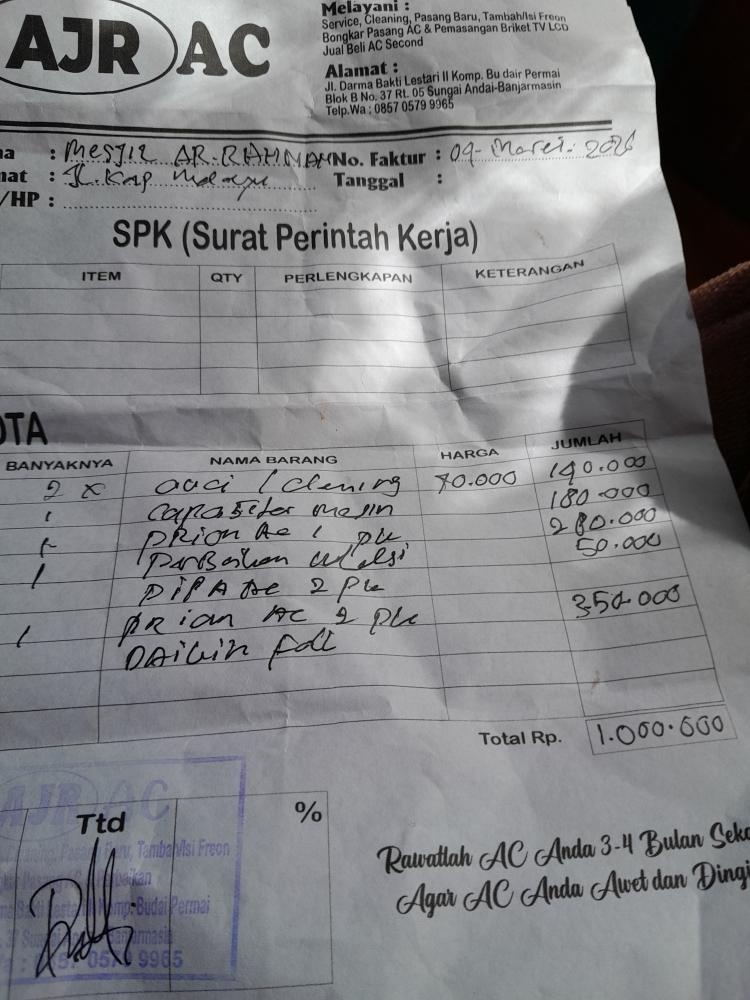 AJR AC
Melayani :
Service, Cleaning, Pasang Baru, Tambah/Isi Freon
Bongkar Pasang AC & Pemasangan Briket TV LCD
Jual Beli AC Second
Alamat :
Jl. Darma Bakti Lestari II Komp. Bu dair Permai
Blok B No. 37 Rt. 05 Sungai Andai-Banjarmasin
Telp.Wa : 0857 0579 9965
: MESJIL AR.RAHMAN No. Faktur : 09- Maret. 2026
: JL. Kap Melayu Tanggal :
/HP :
SPK (Surat Perintah Kerja)
ITEM QTY PERLENGKAPAN KETERANGAN
OTA
BANYAKNYA NAMA BARANG HARGA JUMLAH
2 x cuci / clening 70.000 140.000
1 capasiter mesin 180.000
1 PRion AC 1 pk 280.000
1 perbaikan 50.000
PIPA AC 2 PK
1 PRian AC 2 pk 350.000
DAikin
Total Rp. 1.000.000
AJR AC
Ttd %
Cleaning, Pasang Baru, Tambah/Isi Freon
Komp. Budai Permai
0579 9965
Rawatlah AC Anda 3-4 Bulan
Agar AC Anda Awet dan